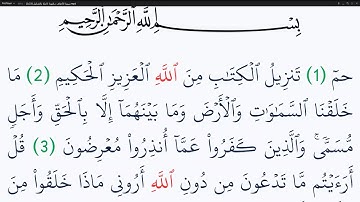 بِسْمِ ٱللَّهِ ٱلرَّحْمَٰنِ ٱلرَّحِيمِ
حمٓ (1) تَنزِيلُ ٱلْكِتَٰبِ مِنَ ٱللَّهِ ٱلْعَزِيزِ ٱلْحَكِيمِ (2) مَا
خَلَقْنَا ٱلسَّمَٰوَٰتِ وَٱلْأَرْضَ وَمَا بَيْنَهُمَآ إِلَّا بِٱلْحَقِّ وَأَجَلٍ
مُّسَمًّىۚ وَٱلَّذِينَ كَفَرُواْ عَمَّآ أُنذِرُواْ مُعْرِضُونَ (3) قُلْ
أَرَءَيْتُم مَّا تَدْعُونَ مِن دُونِ ٱللَّهِ أَرُونِي مَاذَا خَلَقُواْ مِنَ